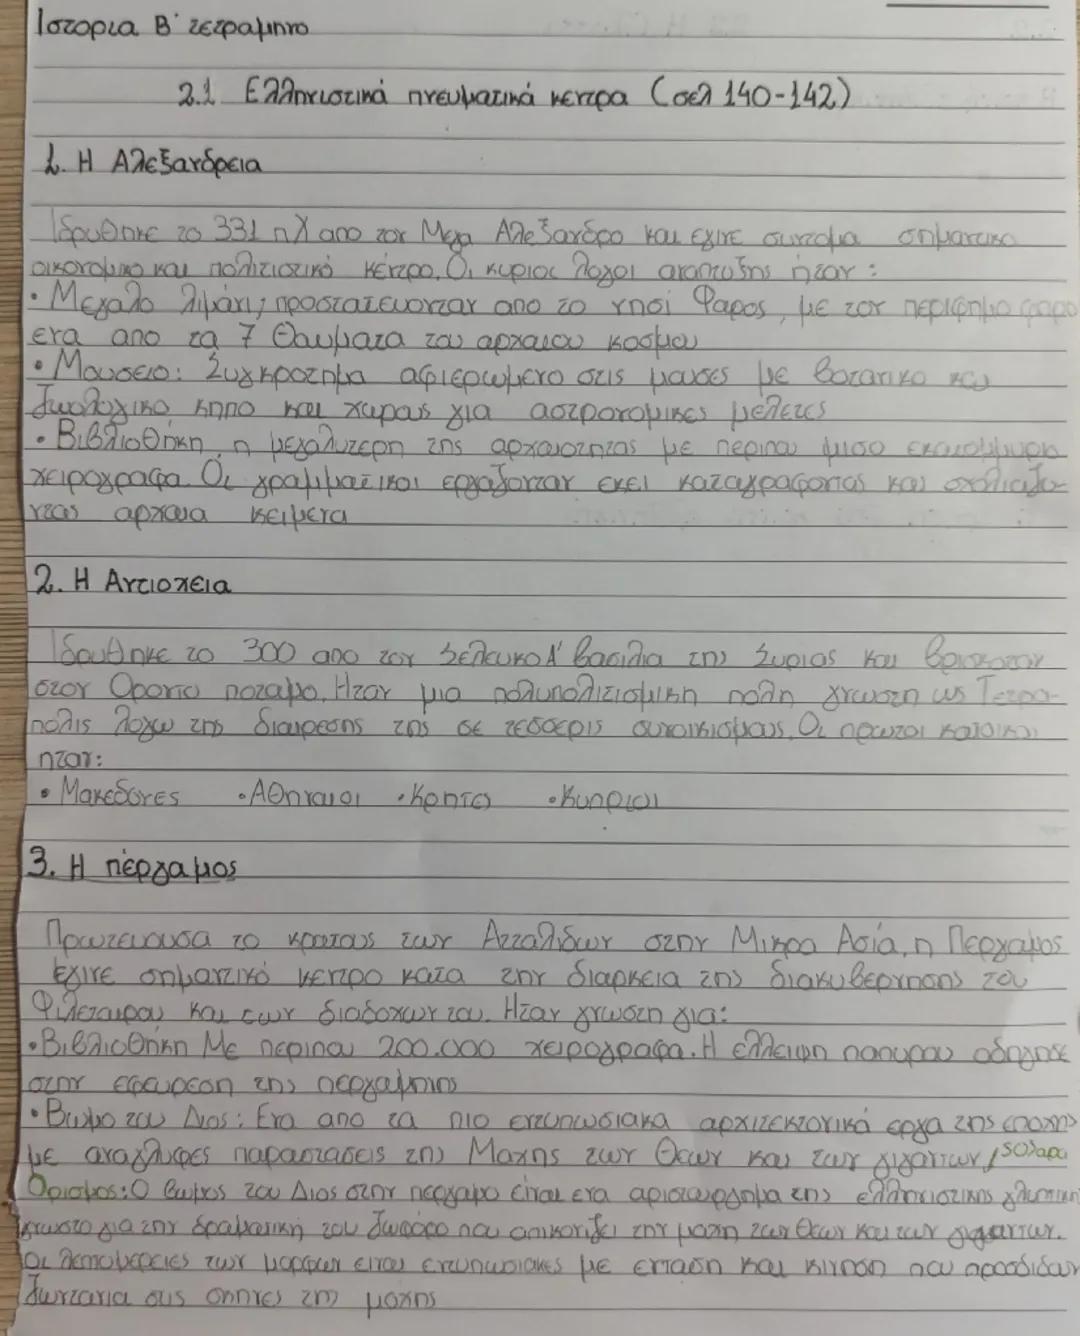 Ιστορια Β' τετραμηνο
2.1 Ελληνιστικά πνευματικά κεντρα (σελ 140-142)
1. Η Αλεξανδρεια
Ιδρυθηκε το 331 πΧ απο τον Μεγα Αλεξανδρο και εγινε συντομα σημαντικο
οικονομικο και πολιτιστικό κέντρο. Οι κυριοι λογοι αναπτυξης ήταν :
• Μεγαλο λιμάνι, προστατευονταν απο το νησί Φαρος, με τον περιφημο φαρο
ενα απο τα 7 Θαυματα του αρχαιου κοσμου
• Μουσειο: Συγκροτημα αφιερωμενο στις μουσες με βοτανικο και
ζωολογικο κηπο και χωρους για αστρονομικες μελετες
• Βιβλιοθήκη, η μεγαλυτερη της αρχαιοτητας με περιπου μισο εκατομμυριο
χειρογραφα. Οι γραμματικοι εργαζονταν εκει καταγραφοντας και σχολιαζο-
ντας αρχαια κειμενα
2. Η Αντιοχεια
Ιδρυθηκε το 300 απο τον Σελευκο Α' βασιλια της Συριας και βρισκοταν
στον Οροντο ποταμο. Ηταν μια πολυπολιτισμικη πολη γνωστη ως Τετρα-
πολις λογω της διαιρεσης της σε τεσσερις συνοικισμους. Οι πρωτοι κατοικοι
ηταν:
• Μακεδονες • Αθηναιοι • Κρητες • Κυπριοι
3. Η πέργαμος
Πρωτευουσα το κρατους των Ατταλιδων στην Μικρα Ασία, η Περγαμος
εγινε σημαντικό κεντρο κατα την διαρκεια της διακυβερνησης του
Φιλεταιρου και των διαδοχων του. Ηταν γνωστη για:
• Βιβλιοθήκη Με περιπου 200.000 χειρογραφα. Η έλλειψη παπυρου οδηγησε
στην εφευρεση της περγαμηνης
• Βωμο του Διος: Ενα απο τα πιο εντυπωσιακα αρχιτεκτονικά εργα της εποχης
με αναγλυφες παραστασεις της Μαχης των Θεων και των γιγαντων,
Ορισμος: Ο βωμος του Διος στην περγαμο είναι ενα αριστουργημα της ελληνιστικης γλυπτικης
γνωστο για την δραματική του ζωφόρο που απικονιζει την μαχη των θεων και των γιγαντων.
Οι λεπτομερειες των μορφων ειναι εντυπωσιακες με ενταση και κινηση που προσδιδουν
ζωντανια στις σκηνες της μαχης